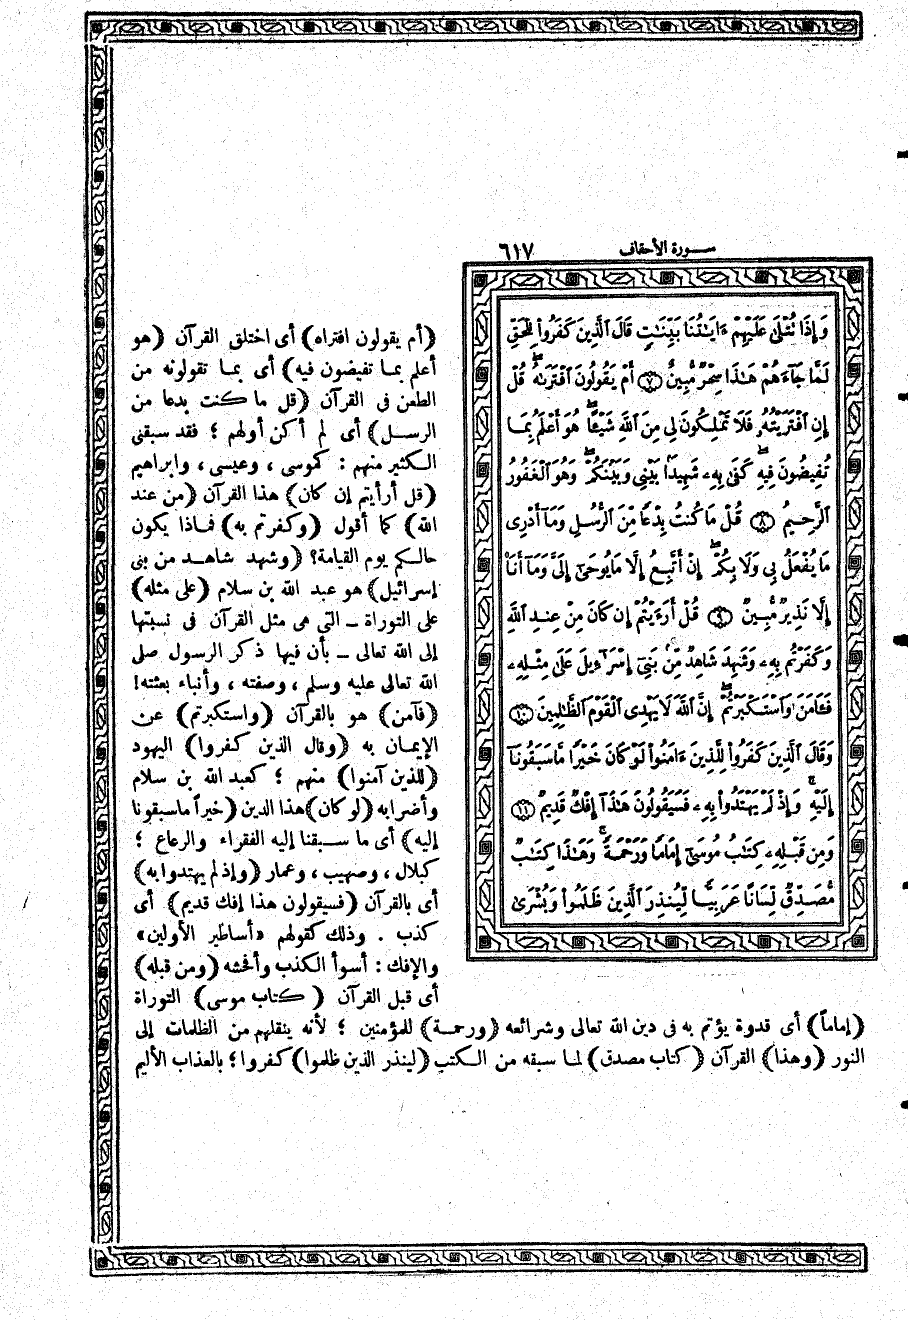 سورة الأحقاف ٦١٧
وَإِذَا تُتْلَىٰ عَلَيْهِمْ ءَايَـٰتُنَا بَيِّنَـٰتٍ قَالَ ٱلَّذِينَ كَفَرُوا۟ لِلْحَقِّ
لَمَّا جَآءَهُمْ هَـٰذَا سِحْرٌ مُّبِينٌ ﴿٧﴾ أَمْ يَقُولُونَ ٱفْتَرَىٰهُ ۖ قُلْ
إِنِ ٱفْتَرَيْتُهُۥ فَلَا تَمْلِكُونَ لِى مِنَ ٱللَّهِ شَيْـًٔا ۖ هُوَ أَعْلَمُ بِمَا
تُفِيضُونَ فِيهِ ۖ كَفَىٰ بِهِۦ شَهِيدًۢا بَيْنِى وَبَيْنَكُمْ ۖ وَهُوَ ٱلْغَفُورُ
ٱلرَّحِيمُ ﴿٨﴾ قُلْ مَا كُنتُ بِدْعًا مِّنَ ٱلرُّسُلِ وَمَآ أَدْرِى
مَا يُفْعَلُ بِى وَلَا بِكُمْ ۖ إِنْ أَتَّبِعُ إِلَّا مَا يُوحَىٰٓ إِلَىَّ وَمَآ أَنَا۠
إِلَّا نَذِيرٌ مُّبِينٌ ﴿٩﴾ قُلْ أَرَءَيْتُمْ إِن كَانَ مِنْ عِندِ ٱللَّهِ
وَكَفَرْتُم بِهِۦ وَشَهِدَ شَاهِدٌ مِّنۢ بَنِىٓ إِسْرَٰٓءِيلَ عَلَىٰ مِثْلِهِۦ
فَـَٔامَنَ وَٱسْتَكْبَرْتُمْ ۖ إِنَّ ٱللَّهَ لَا يَهْدِى ٱلْقَوْمَ ٱلظَّـٰلِمِينَ ﴿١٠﴾
وَقَالَ ٱلَّذِينَ كَفَرُوا۟ لِلَّذِينَ ءَامَنُوا۟ لَوْ كَانَ خَيْرًا مَّا سَبَقُونَآ
إِلَيْهِ ۚ وَإِذْ لَمْ يَهْتَدُوا۟ بِهِۦ فَسَيَقُولُونَ هَـٰذَآ إِفْكٌ قَدِيمٌ ﴿١١﴾
وَمِن قَبْلِهِۦ كِتَـٰبُ مُوسَىٰٓ إِمَامًا وَرَحْمَةً ۚ وَهَـٰذَا كِتَـٰبٌ
مُّصَدِّقٌ لِّسَانًا عَرَبِيًّا لِّيُنذِرَ ٱلَّذِينَ ظَلَمُوا۟ وَبُشْرَىٰ
(أم يقولون افتراه) أى اختلق القرآن (هو
أعلم بما تفيضون فيه) أى بما تقولونه من
الطعن فى القرآن (قل ما كنت بدعا من
الرسل) أى لم أكن أولهم ؛ فقد سبقنى
الكثير منهم : كموسى ، وعيسى ، وابراهيم
(قل أرأيتم إن كان) هذا القرآن (من عند
الله) كما أقول (وكفرتم به) فماذا يكون
حالكم يوم القيامة؟ (وشهد شاهد من بنى
إسرائيل) هو عبد الله بن سلام (على مثله)
على التوراة ــ التى هى مثل القرآن فى نسبتها
إلى الله تعالى ــ بأن فيها ذكر الرسول صلى
الله تعالى عليه وسلم ، وصفته ، وأنباء بعثته!
(فآمن) هو بالقرآن (واستكبرتم) عن
الإيمان به (وقال الذين كفروا) اليهود
(للذين آمنوا) منهم ؛ كعبد الله بن سلام
وأضرابه (لو كان) هذا الدين (خيراً ماسبقونا
إليه) أى ما سبقنا إليه الفقراء والرعاع ؛
كبلال ، وصهيب ، وعمار (وإذ لم يهتدوا به)
أى بالقرآن (فسيقولون هذا إفك قديم) أى
كذب . وذلك كقولهم «أساطير الأولين»
والإفك : أسوأ الكذب وأفحشه (ومن قبله)
أى قبل القرآن (كتاب موسى) التوراة
(إماماً) أى قدوة يؤتم به فى دين الله تعالى وشرائعه (ورحمة) للمؤمنين ؛ لأنه ينقلهم من الظلمات إلى
النور (وهذا) القرآن (كتاب مصدق) لما سبقه من الكتب (لينذر الذين ظلموا) كفروا ؛ بالعذاب الأليم